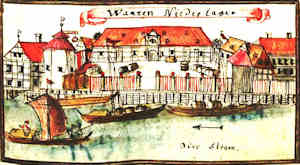 Waaren Niederlagen
Oder Strom.